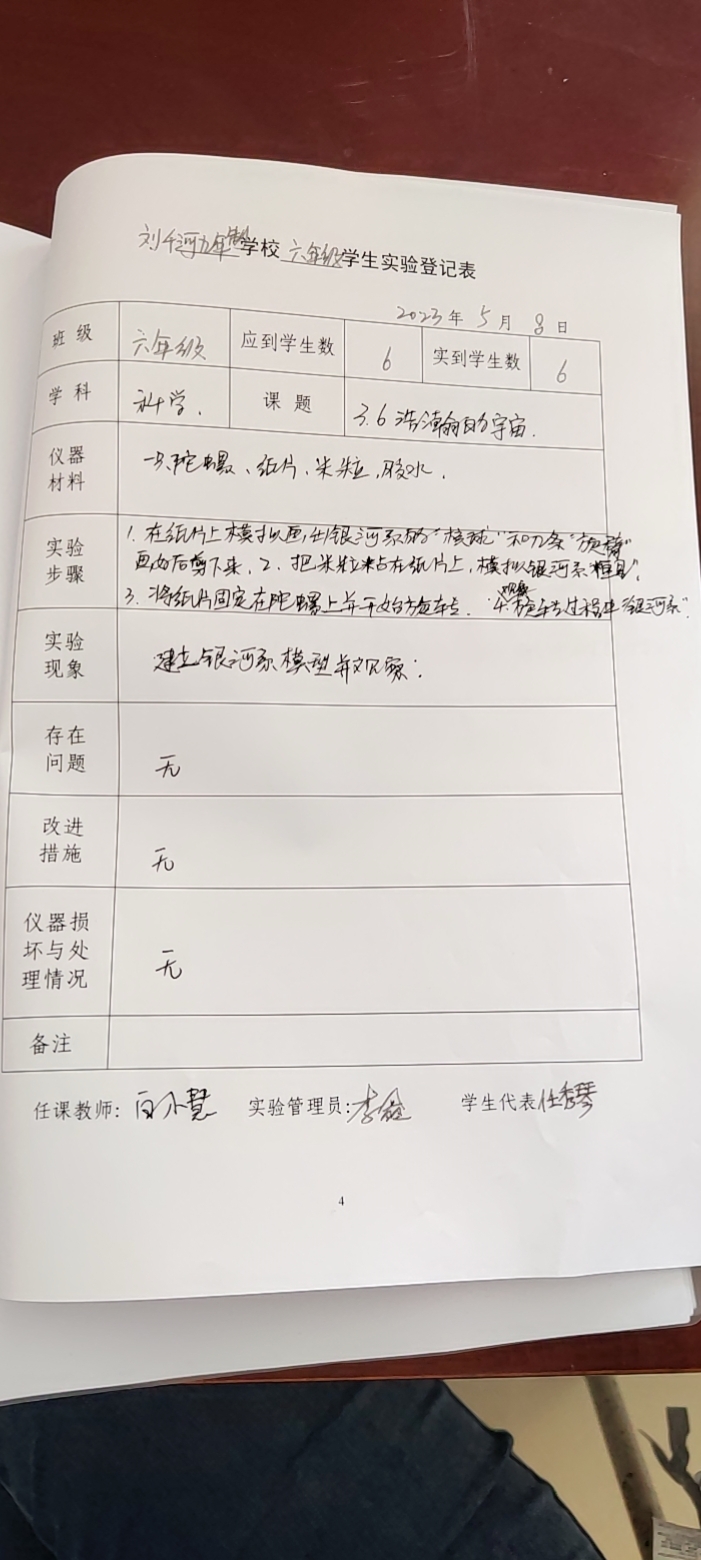 刘千河九年制学校六年级学生实验登记表
2023年5月8日
班级 六年级 应到学生数 6 实到学生数 6
学科 科学. 课题 3.6浩瀚的宇宙.
仪器材料 陀螺、纸片、米粒,胶水.
实验步骤 1.在纸片上模拟画出银河系的"核球"和九条"旋臂"
画好后剪下来. 2.把米粒粘在纸片上,模拟银河系"恒星".
3.将纸片固定在陀螺上并开始旋转. 4.观察旋转过程中"银河系".
实验现象 建立银河系模型并观察.
存在问题 无
改进措施 无
仪器损坏与处理情况 无
备注
任课教师: 白小慧 实验管理员: 李 学生代表 任秀琴
4